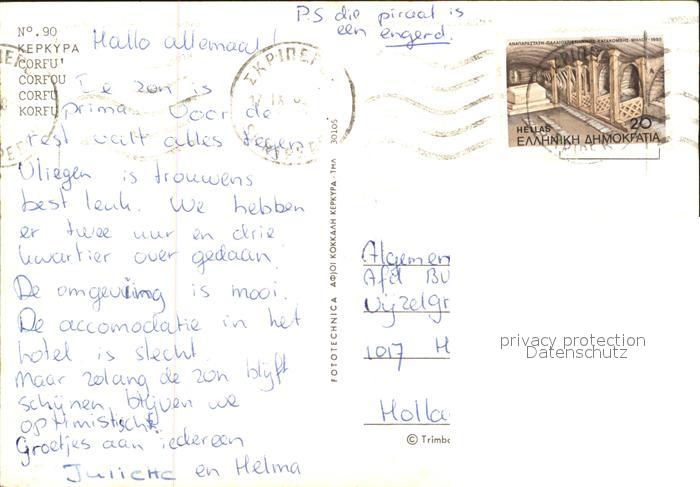 P.S die piraat is
een engerd.
No. 90
ΚΕΡΚΥΡΑ
CORFU'
CORFOU
CORFU
KORFU
Hallo allemaal!
De zon is
prima. Voor de
rest valt alles tegen
Vliegen is trouwens
best leuk. We hebben
er twee uur en drie
kwartier over gedaan.
De omgeving is mooi.
De accomodatie in het
hotel is slecht.
Maar zolang de zon blijft
schijnen blijven we
optimistisch!
Groetjes aan iedereen
en Helma
FOTOTECHNICA ΑΦ|ΟΙ ΚΟΚΚΑΛΗ ΚΕΡΚΥΡΑ - ΤΗΛ 30105
HELLAS 20
ΕΛΛΗΝΙΚΗ ΔΗΜΟΚΡΑΤΙΑ
Algemen
Afd Bu
Vijzelgr
1017 H
Holla
© Trimbo
privacy protection
Datenschutz